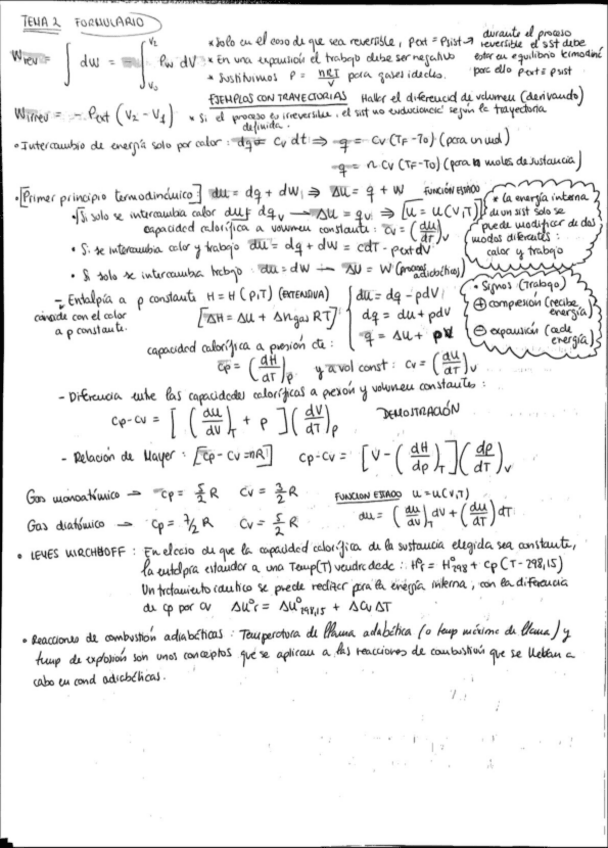 TEMA 2 FORMULARIO
Wrev = ∫ dw = - ∫_{V_0}^{V_2} Pw dV
* Solo en el caso de que sea reversible, pext = psist → durante el proceso reversible el sist debe estar en equilibrio termodinc para ello pext = psist
* En una expansión el trabajo debe ser negativo
* Sustituimos P = nRT/V para gases ideales.
EJEMPLOS CON TRAYECTORIAS Hallar el diferencial de volumen (derivando)
Wirrev = - Pext (V2 - V1)
* Si el proceso es irreversible, el sist no evoluciona según la trayectoria definida.
• Intercambio de energía solo por calor: dq = Cv dt ⇒ q = Cv (TF - To) (para un mol)
q = n Cv (TF - To) (para n moles de sustancia)
• [Primer principio termodinámico] du = dq + dw ⇒ ΔU = q + W FUNCIÓN ESTADO
• Si solo se intercambia calor du = dqv → ΔU = qv ⇒ [U = U(V,T)]
capacidad calorífica a volumen constante: Cv = (du/dT)v
* la energía interna de un sist solo se puede modificar de dos modos diferentes: calor y trabajo
• Si se intercambia calor y trabajo du = dq + dw = cdT - pextdV
• Si solo se intercambia trabajo: du = dw → ΔU = W (proceso adiabático)
• Signos (Trabajo)
⊕ compresión (recibe energía)
⊖ expansión (cede energía)
- Entalpía a p constante H = H(P,T) (EXTENSIVA)
coincide con el calor a p constante.
[ΔH = ΔU + Δngas RT]
du = dq - pdV
dq = du + pdV
q = ΔU + pV
capacidad calorífica a presión cte:
Cp = (dH/dT)p y a vol const: Cv = (du/dT)v
- Diferencia entre las capacidades caloríficas a presión y volumen constantes:
Cp - Cv = [(du/dV)T + p](dV/dT)p DEMOSTRACIÓN
- Relación de Mayer: [Cp - Cv = nR] Cp - Cv = [V - (dH/dp)T](dp/dT)v
Gas monoatómico → Cp = 5/2 R Cv = 3/2 R
FUNCION ESTADO U = U(V,T)
Gas diatómico → Cp = 7/2 R Cv = 5/2 R
du = (du/dV)T dV + (du/dT) dT
• LEYES KIRCHHOFF: En el caso de que la capacidad calorífica de la sustancia elegida sea constante,
la entalpía estándar a una Temp(T) vendrá dada: H°T = H°298 + Cp (T - 298,15)
Un tratamiento idéntico se puede realizar para la energía interna, con la diferencia
de cp por cv ΔU°T = ΔU°298,15 + ΔCv ΔT
• Reacciones de combustión adiabáticas: Temperatura de llama adabética (o temp máxima de llama) y
temp de explosión son unos conceptos que se aplican a las reacciones de combustión que se llevan a
cabo en cond adiabáticas.